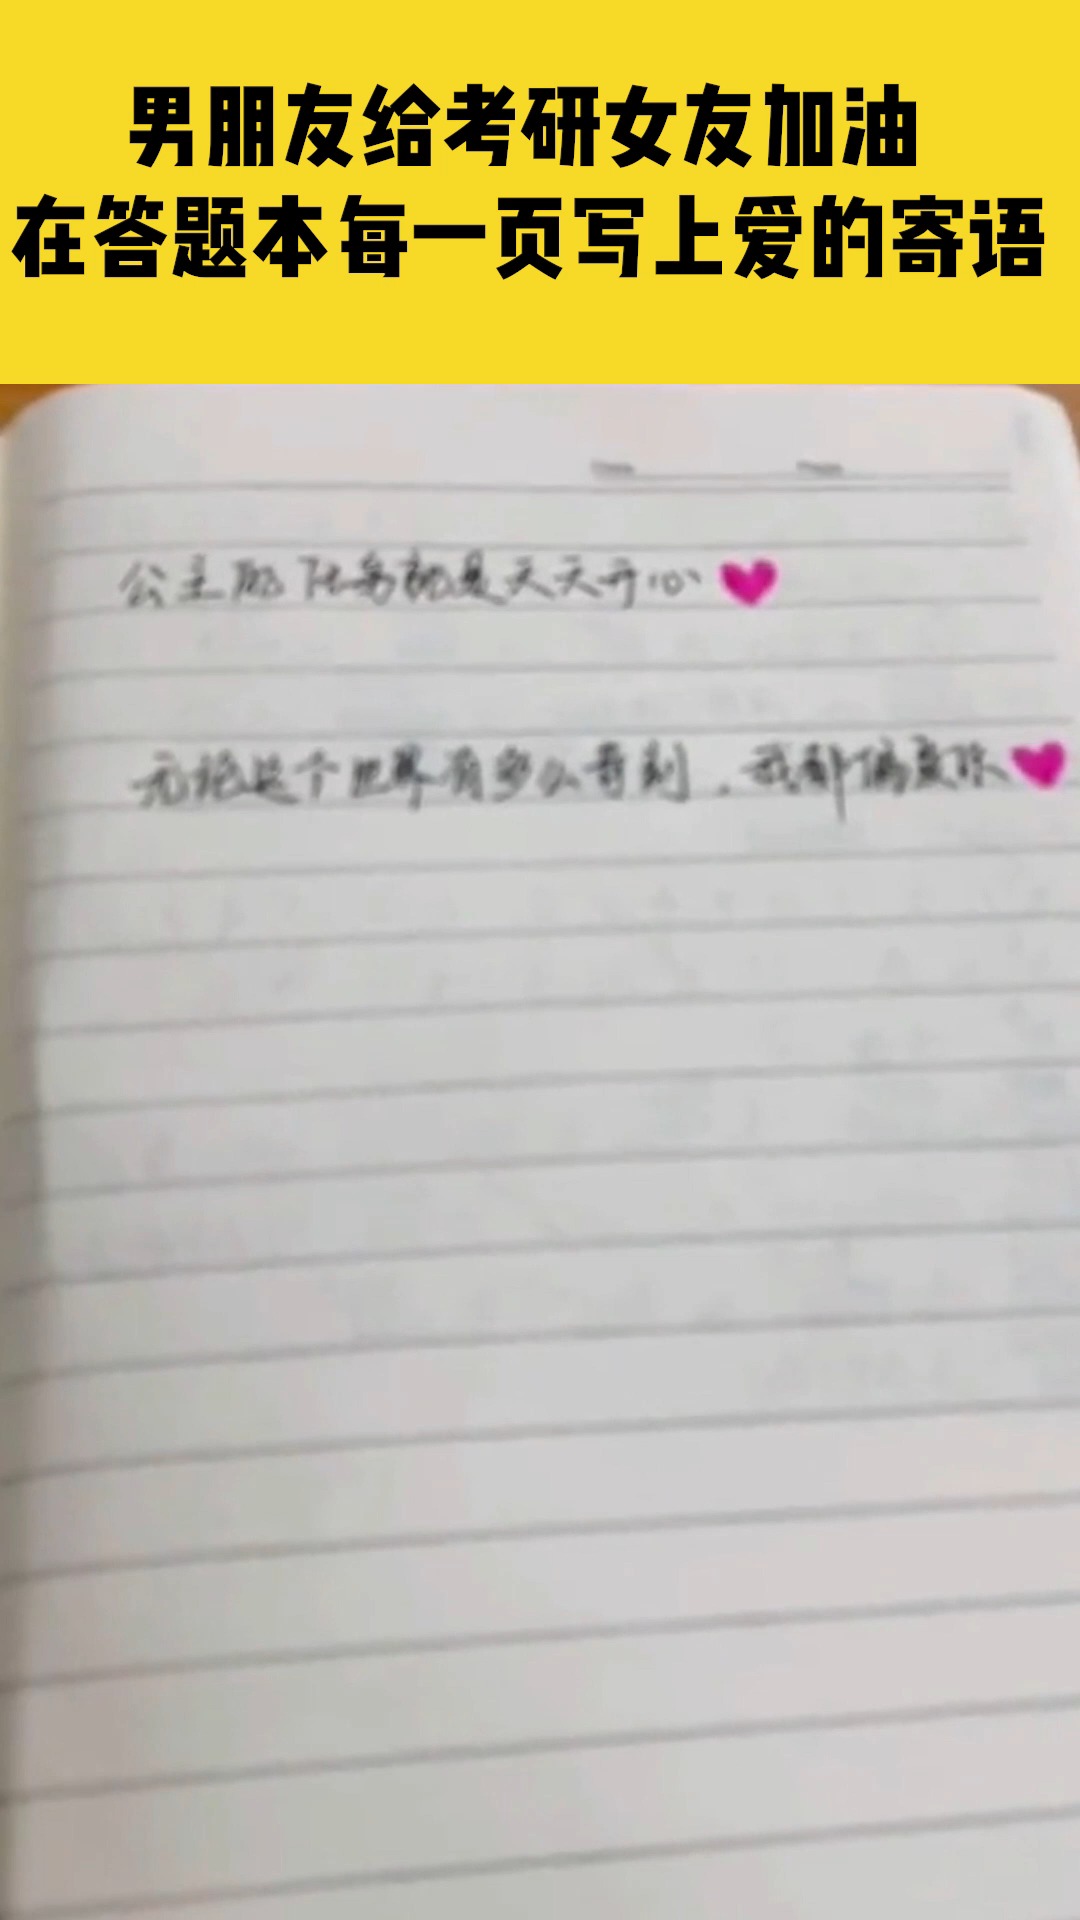 男朋友给考研女友加油
在答题本每一页写上爱的寄语
公主的任务就是天天开心
无论这个世界有多么苛刻，我都偏爱你